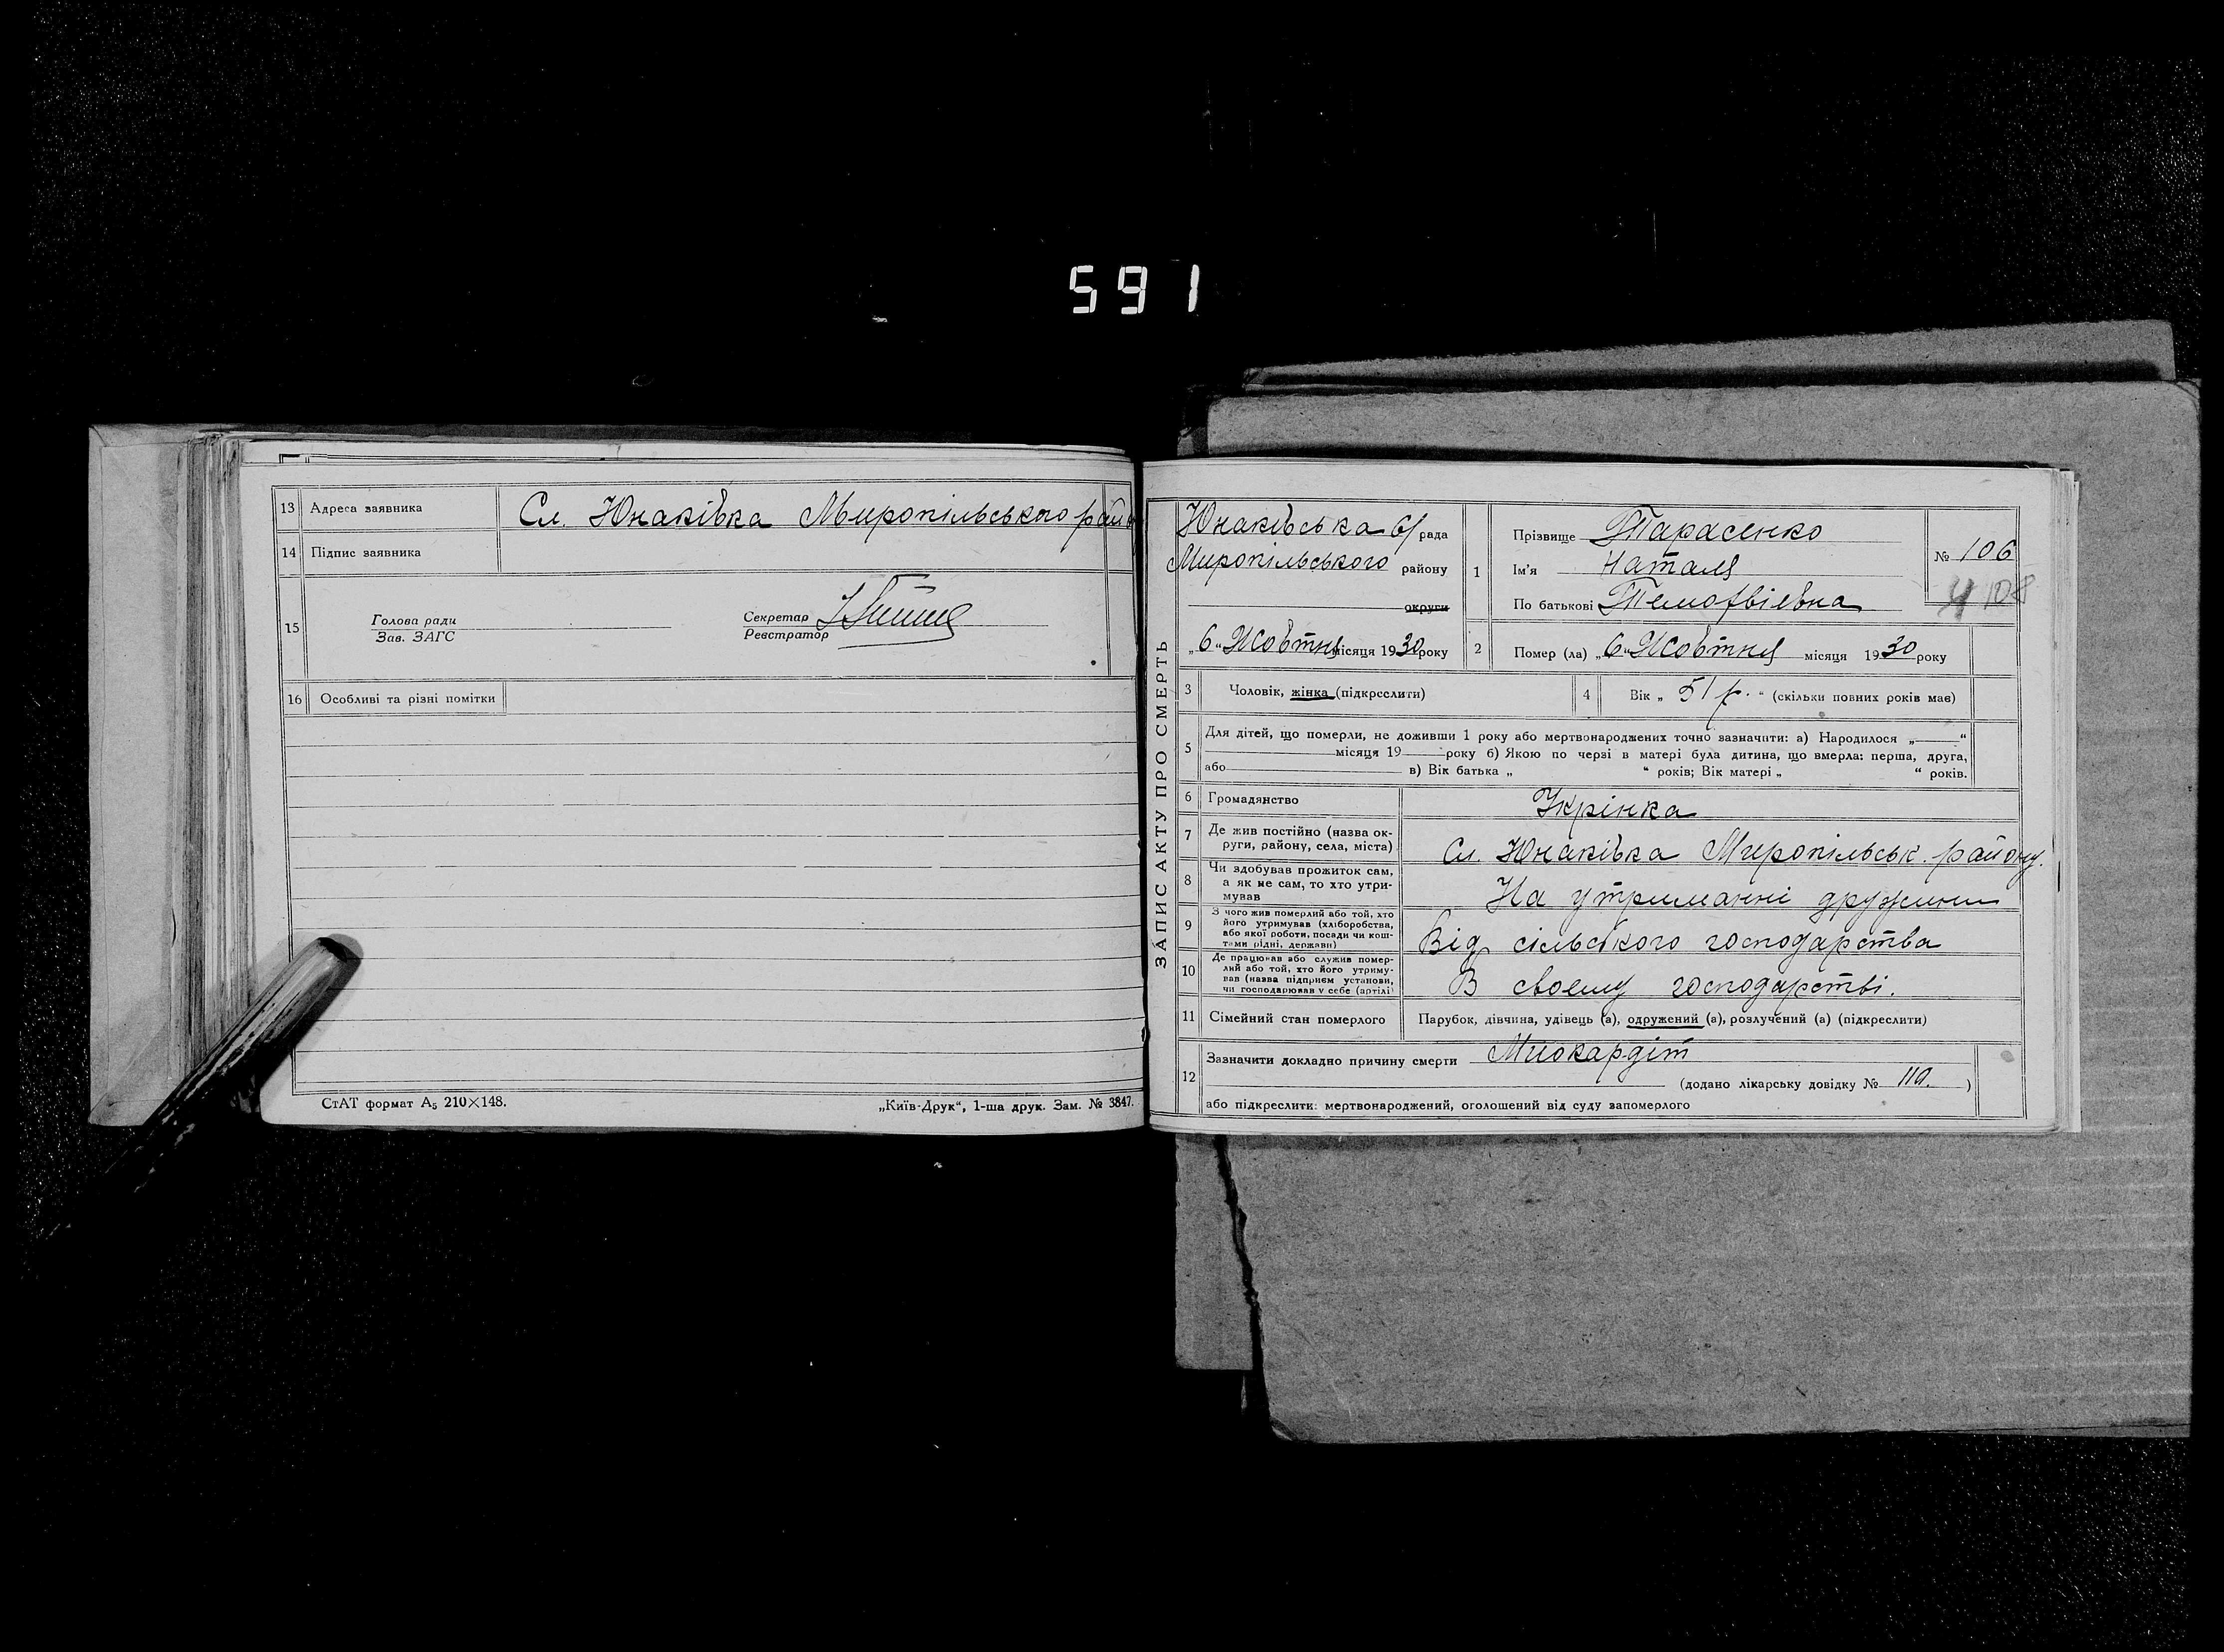 591
13 Адреса заявника Сл. Юнаківка Миропільського райо
14 Підпис заявника
15 Голова ради
Зав. ЗАГС
Секретар
Реєстратор
16 Особливі та різні помітки
СтАТ формат А5 210×148.
„Київ-Друк“, 1-ша друк. Зам. № 3847.
ЗАПИС АКТУ ПРО СМЕРТЬ
Юнаківська с/рада
Миропільського району
округи
„6“ Жовтня місяця 1930 року
1 Прізвище Тарасенко
Ім'я Наталя
По батькові Тимофвіевна
№ 106
108
2 Помер (ла) „6“ Жовтня місяця 1930 року
3 Чоловік, жінка (підкреслити)
4 Вік „ 51 р. “ (скільки повних років має)
5 Для дітей, що померли, не доживши 1 року або мертвонароджених точно зазначити: а) Народилося „ “
місяця 19 року б) Якою по черзі в матері була дитина, що вмерла: перша, друга,
або в) Вік батька „ “ років; Вік матері „ “ років.
6 Громадянство Укрінка
7 Де жив постійно (назва ок-
руги, району, села, міста) Сл. Юнаківка Миропільськ. району.
8 Чи здобував прожиток сам,
а як не сам, то хто утри-
мував На утриманні дружини
9 З чого жив померлий або той, хто
його утримував (хліборобства,
або якої роботи, посади чи кош-
тами рідні, держави) Від сільського господарства
10 Де працював або служив помер-
лий або той, хто його утриму-
вав (назва підприєм установи,
чи господарював у себе (артілі) В своему господарстві.
11 Сімейний стан померлого Парубок, дівчина, удівець (а), одружений (а), розлучений (а) (підкреслити)
12 Зазначити докладно причину смерти Миокардіт
(додано лікарську довідку № 119. )
або підкреслити: мертвонароджений, оголошений від суду запомерлого